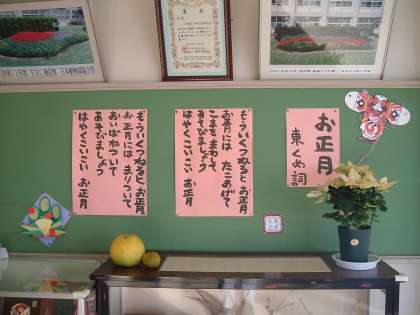 お正月
東くめ 詞
もういくつねると お正月
お正月には たこあげて
こまを まわして
あそびましょう
はやくこいこい お正月
もういくつねると お正月
お正月には まりついて
おいばねついて
あそびましょう
はやくこいこい お正月